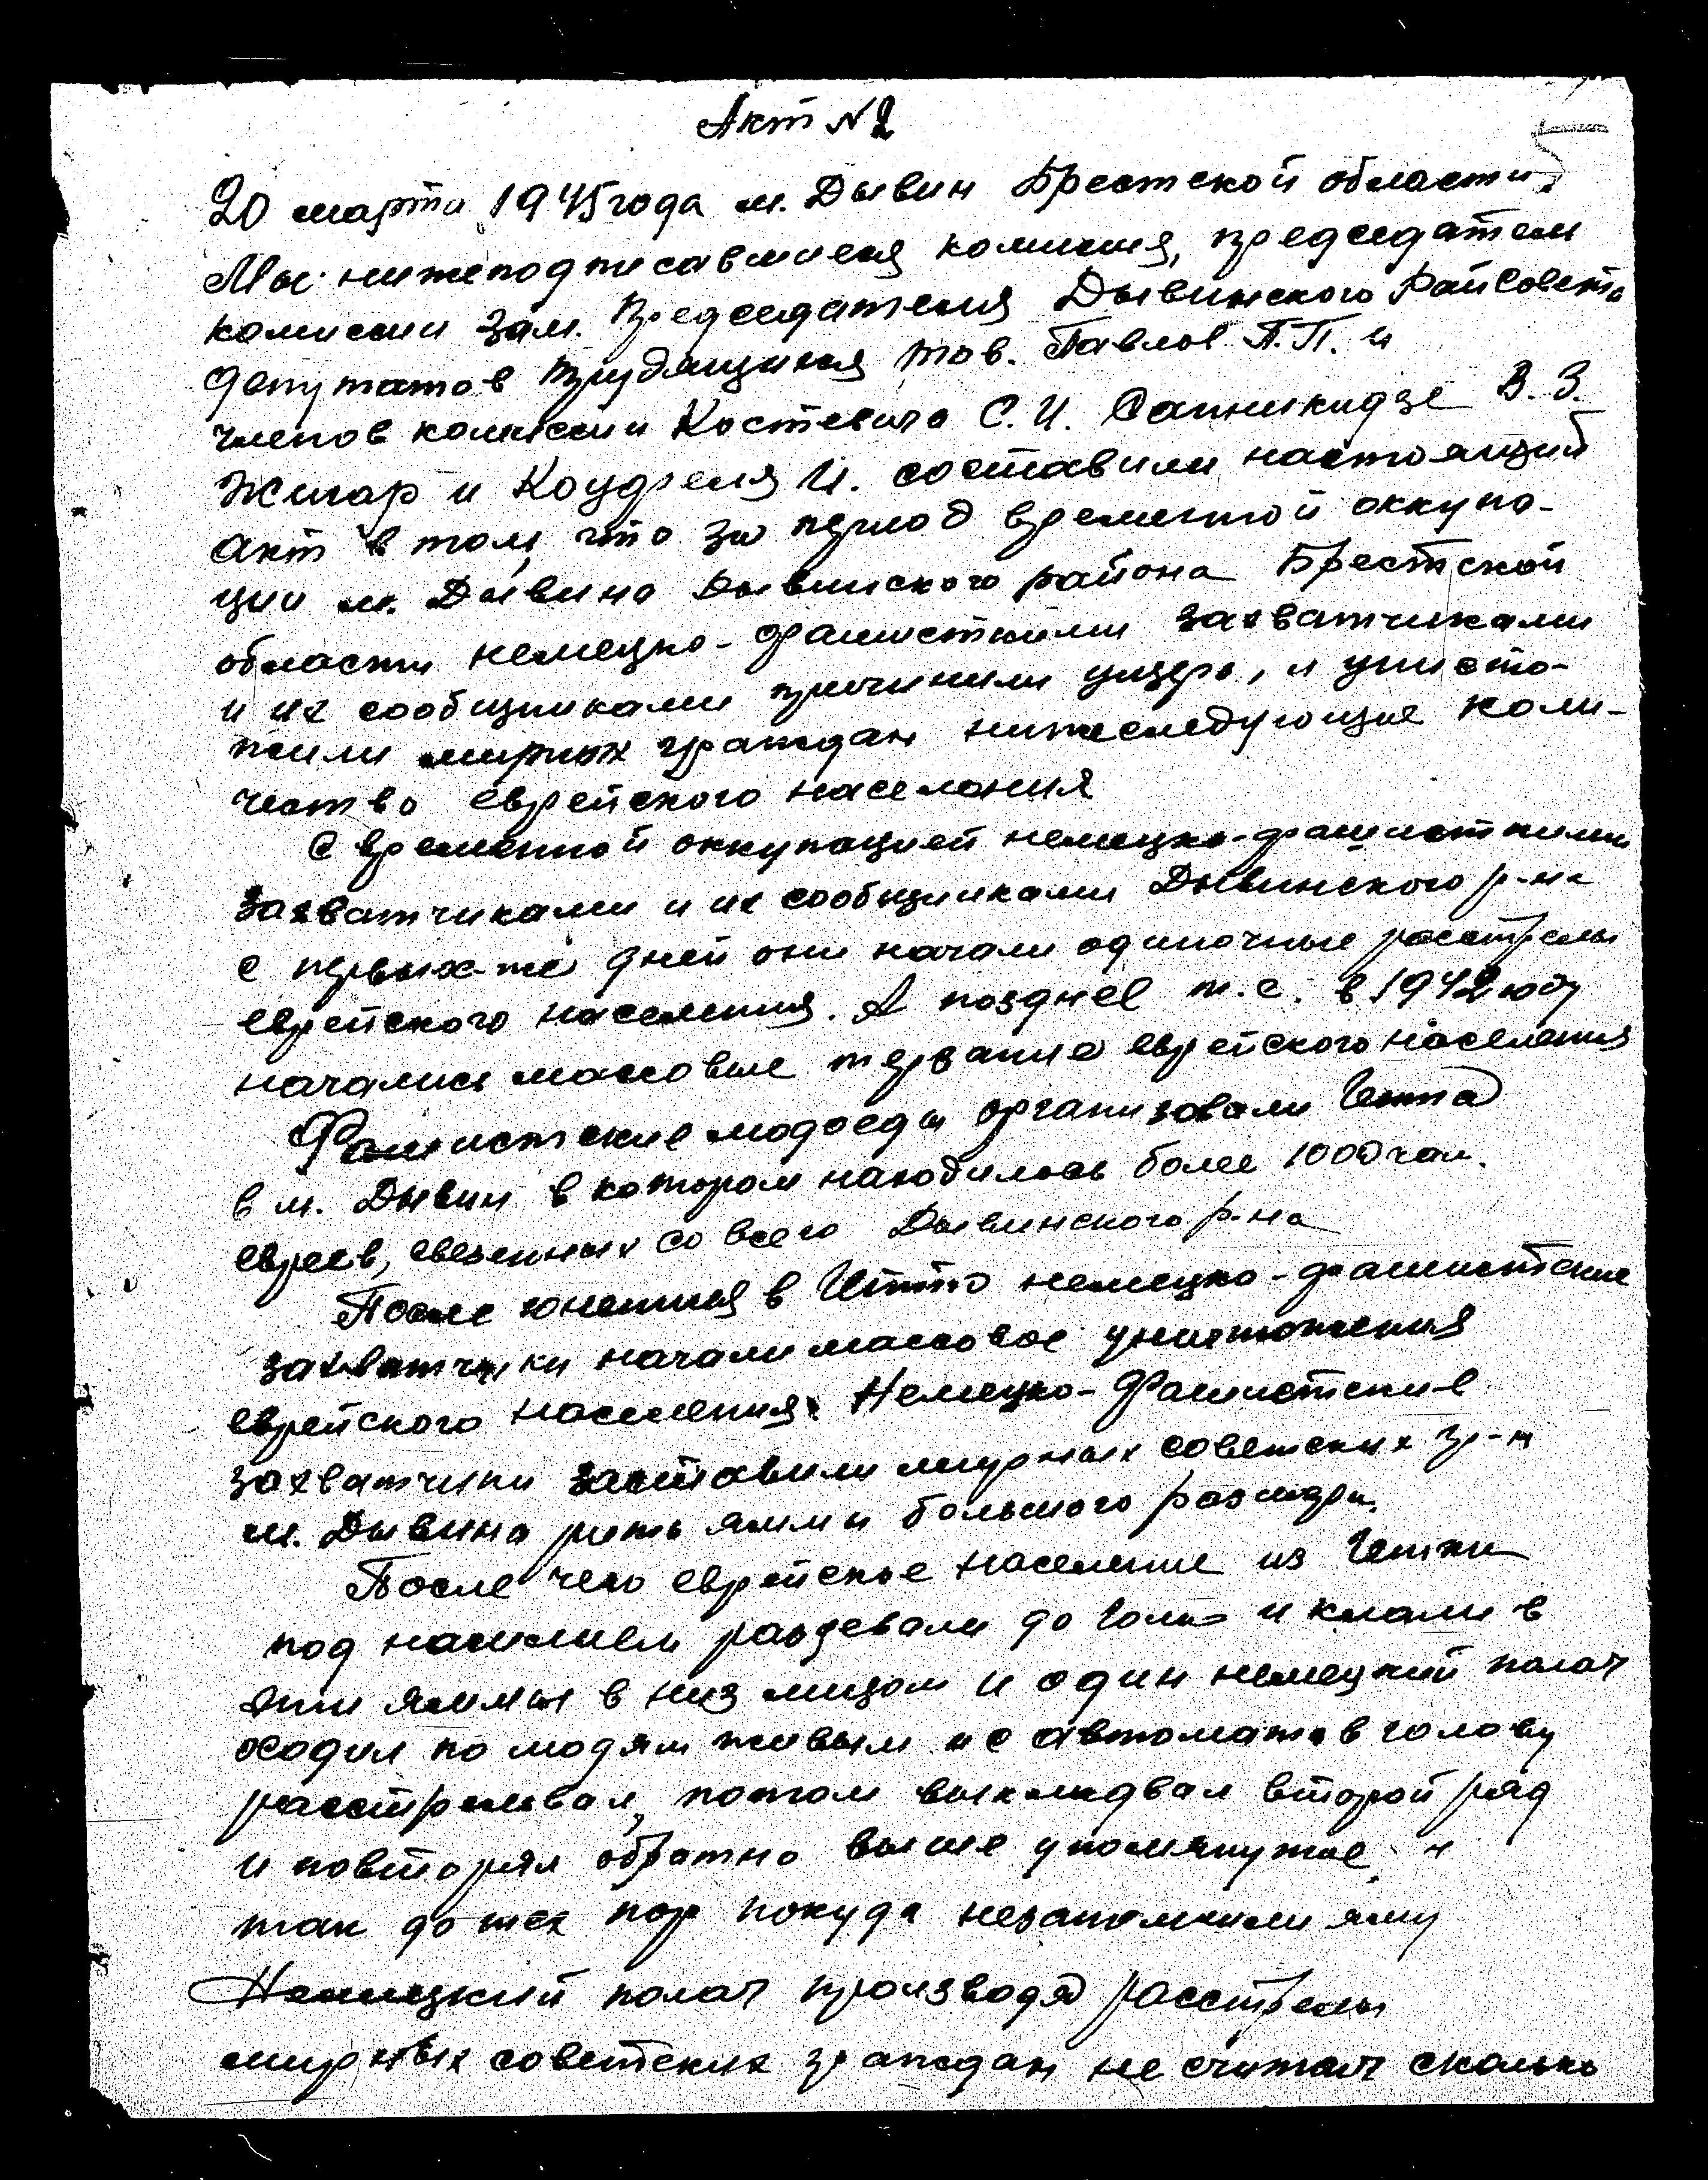 Акт № 2
20 марта 1945 года м. Дывин Брестской области.
Мы нижеподписавшиеся комисия, председатель
комиссии зам. Председателя Дывинского РайСовета
депутатов трудящихся тов. Павлов П.П. и
членов комиссии Костевича С.И. В.З.
Жигар и И. составили настоящий
акт в том, что за период временной оккупа-
ции м. Дывина Дывинского района Брестской
области немецко-фашисткими захватчиками
и их сообщниками причинили ущерб, и уничто-
жили мирных граждан нижеследующие коли-
чество еврейского населения
С временной оккупацией немецко-фашисткими
захватчиками и их сообщниками Дывинского р-на
с первых-же дней они начали одиночные расстрелы
еврейского населения. А позднее т.е. в 1942 году
начались массовые терзание еврейского населения
Фашистские людоеды организовали Гетто
в м. Дывин в котором находилось более 1000 чел.
евреев, свезенных со всего Дывинского р-на
После в Гетто немецко-фашистские
захватчики начали массовое уничтожения
еврейского населения. Немецко-Фашистские
захватчики заставили мирных советских гр-н
м. Дывина рыть яммы большого размера.
После чего еврейское население из Гетты
под насилием раздевали до гола и клали в
эти яммы в низ лицом и один немецкий палач
ходил по людям живым и с автомата в голову
расстреливал, потом второй ряд
и повторял обратно выше упомянутое и
так до тех пор покуда яму
Немецкий палач производя расстрелы
мирных советских граждан не считал сколько